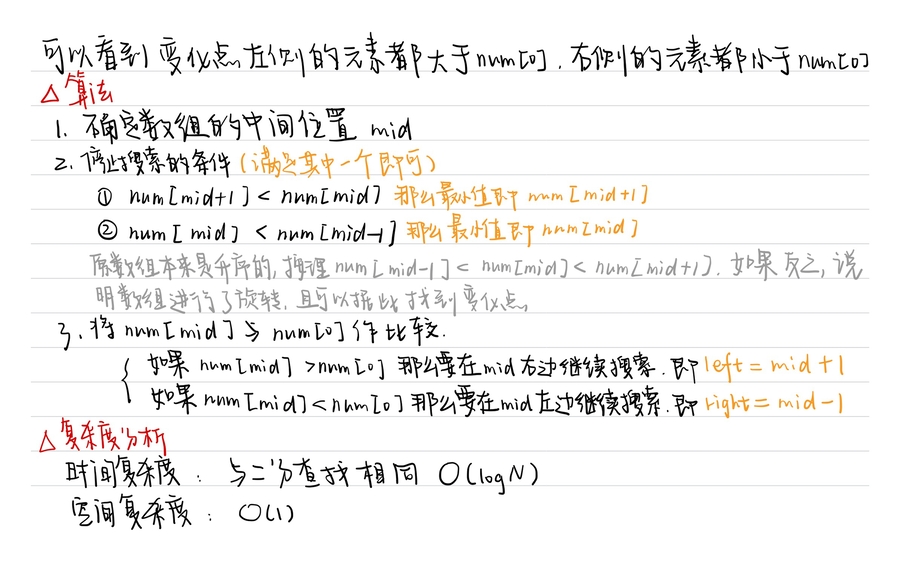 可以看到变化点左侧的元素都大于num[0]，右侧的元素都小于num[0]
△算法
1. 确定数组的中间位置 mid
2. 停止搜索的条件（满足其中一个即可）
① num[mid+1] < num[mid] 那么最小值即 num[mid+1]
② num[mid] < num[mid-1] 那么最小值即 num[mid]
原数组本来是升序的，按理 num[mid-1] < num[mid] < num[mid+1]. 如果反之，说
明数组进行了旋转，且可以据此找到变化点。
3. 将 num[mid] 与 num[0] 作比较.
如果 num[mid] > num[0] 那么要在mid右边继续搜索. 即 left = mid+1
如果 num[mid] < num[0] 那么要在mid左边继续搜索. 即 right = mid-1
△复杂度分析
时间复杂度： 与二分查找相同 O(logN)
空间复杂度： O(1)